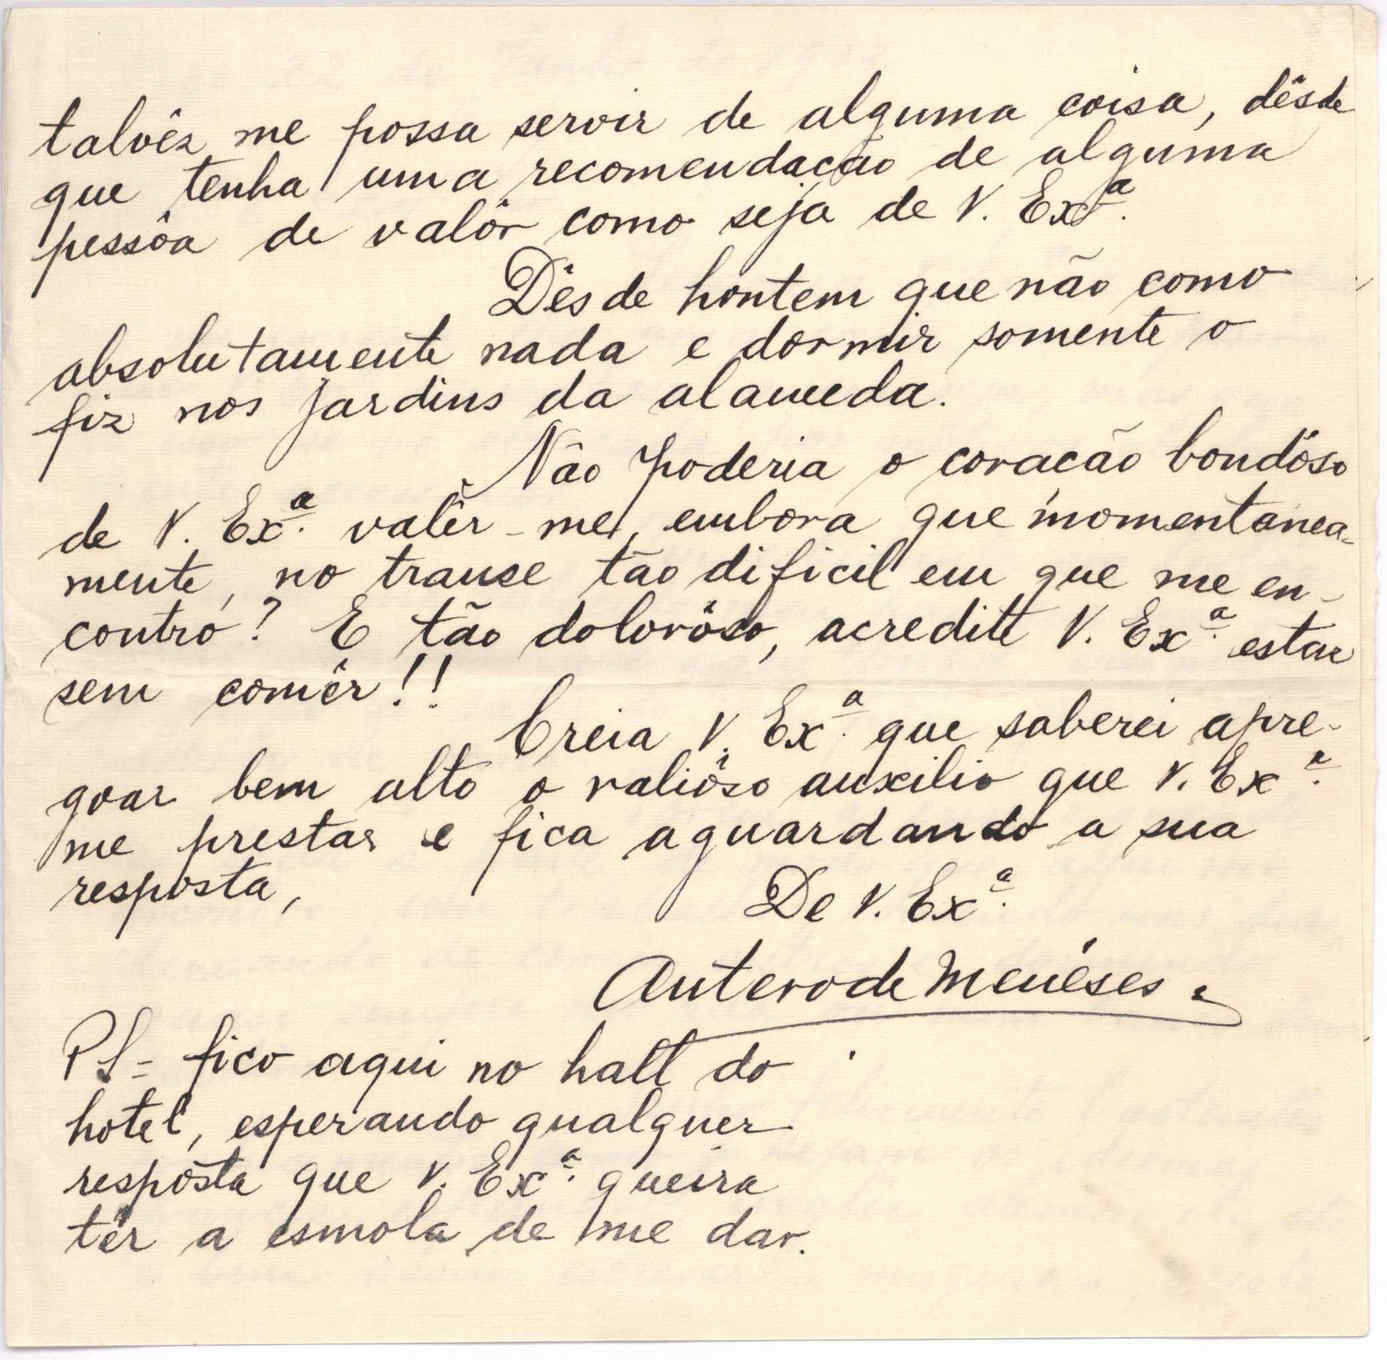 talvêz me possa servir de alguma coisa, dêsde
que tenha uma recomendação de alguma
pessôa de valôr como seja de V. Exª.
Dêsde hontem que não como
absolutamente nada e dormir somente o
fiz nos jardins da alameda.
Não poderia o coracão bondôso
de V. Exª. valêr-me, embora que momentanea-
mente, no transe tão dificil em que me en-
contro? E tão dolorôso, acredite V. Exª. estar
sem comêr!!
Creia V. Exª. que saberei apre-
goar bem alto o valiôso auxilio que V. Exª.
me prestar e fica aguardando a sua
resposta,
De V. Exª.
Antero de Menêses.
PS= fico aqui no hall do
hotel, esperando qualquer
respôsta que V. Exª. queira
têr a esmola de me dar.